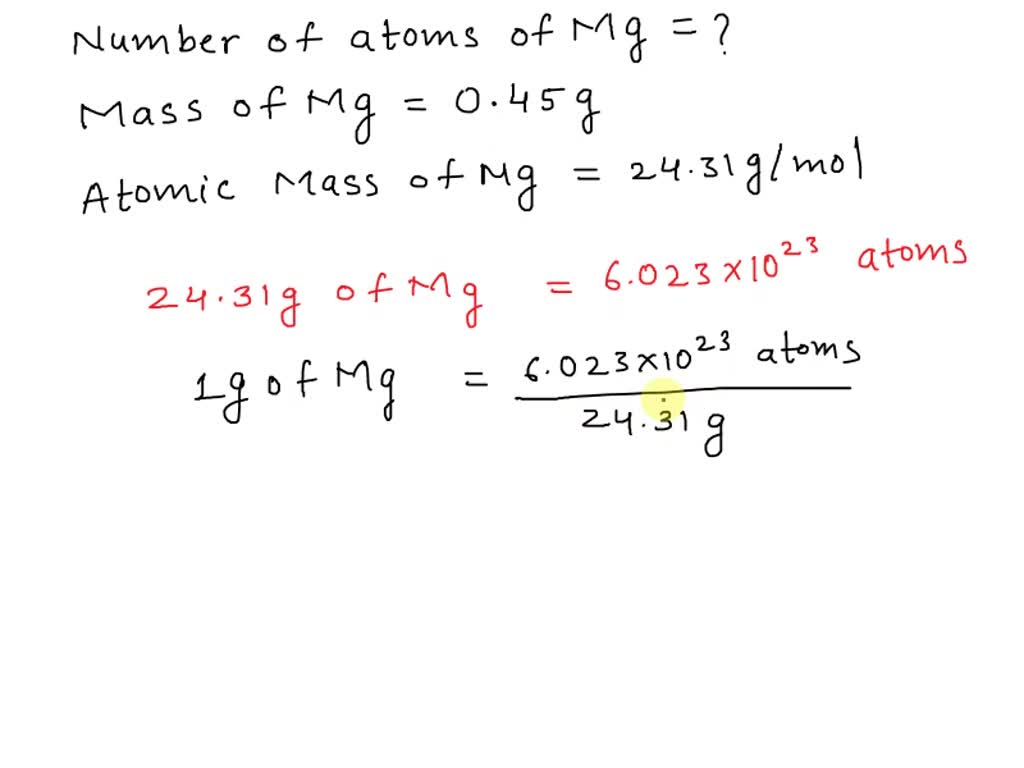 Number of atoms of Mg = ?
Mass of Mg = 0.45g
Atomic Mass of Mg = 24.31g/mol
24.31g of Mg = 6.023×10²³ atoms
1g of Mg = 6.023×10²³ atoms
24.31 g